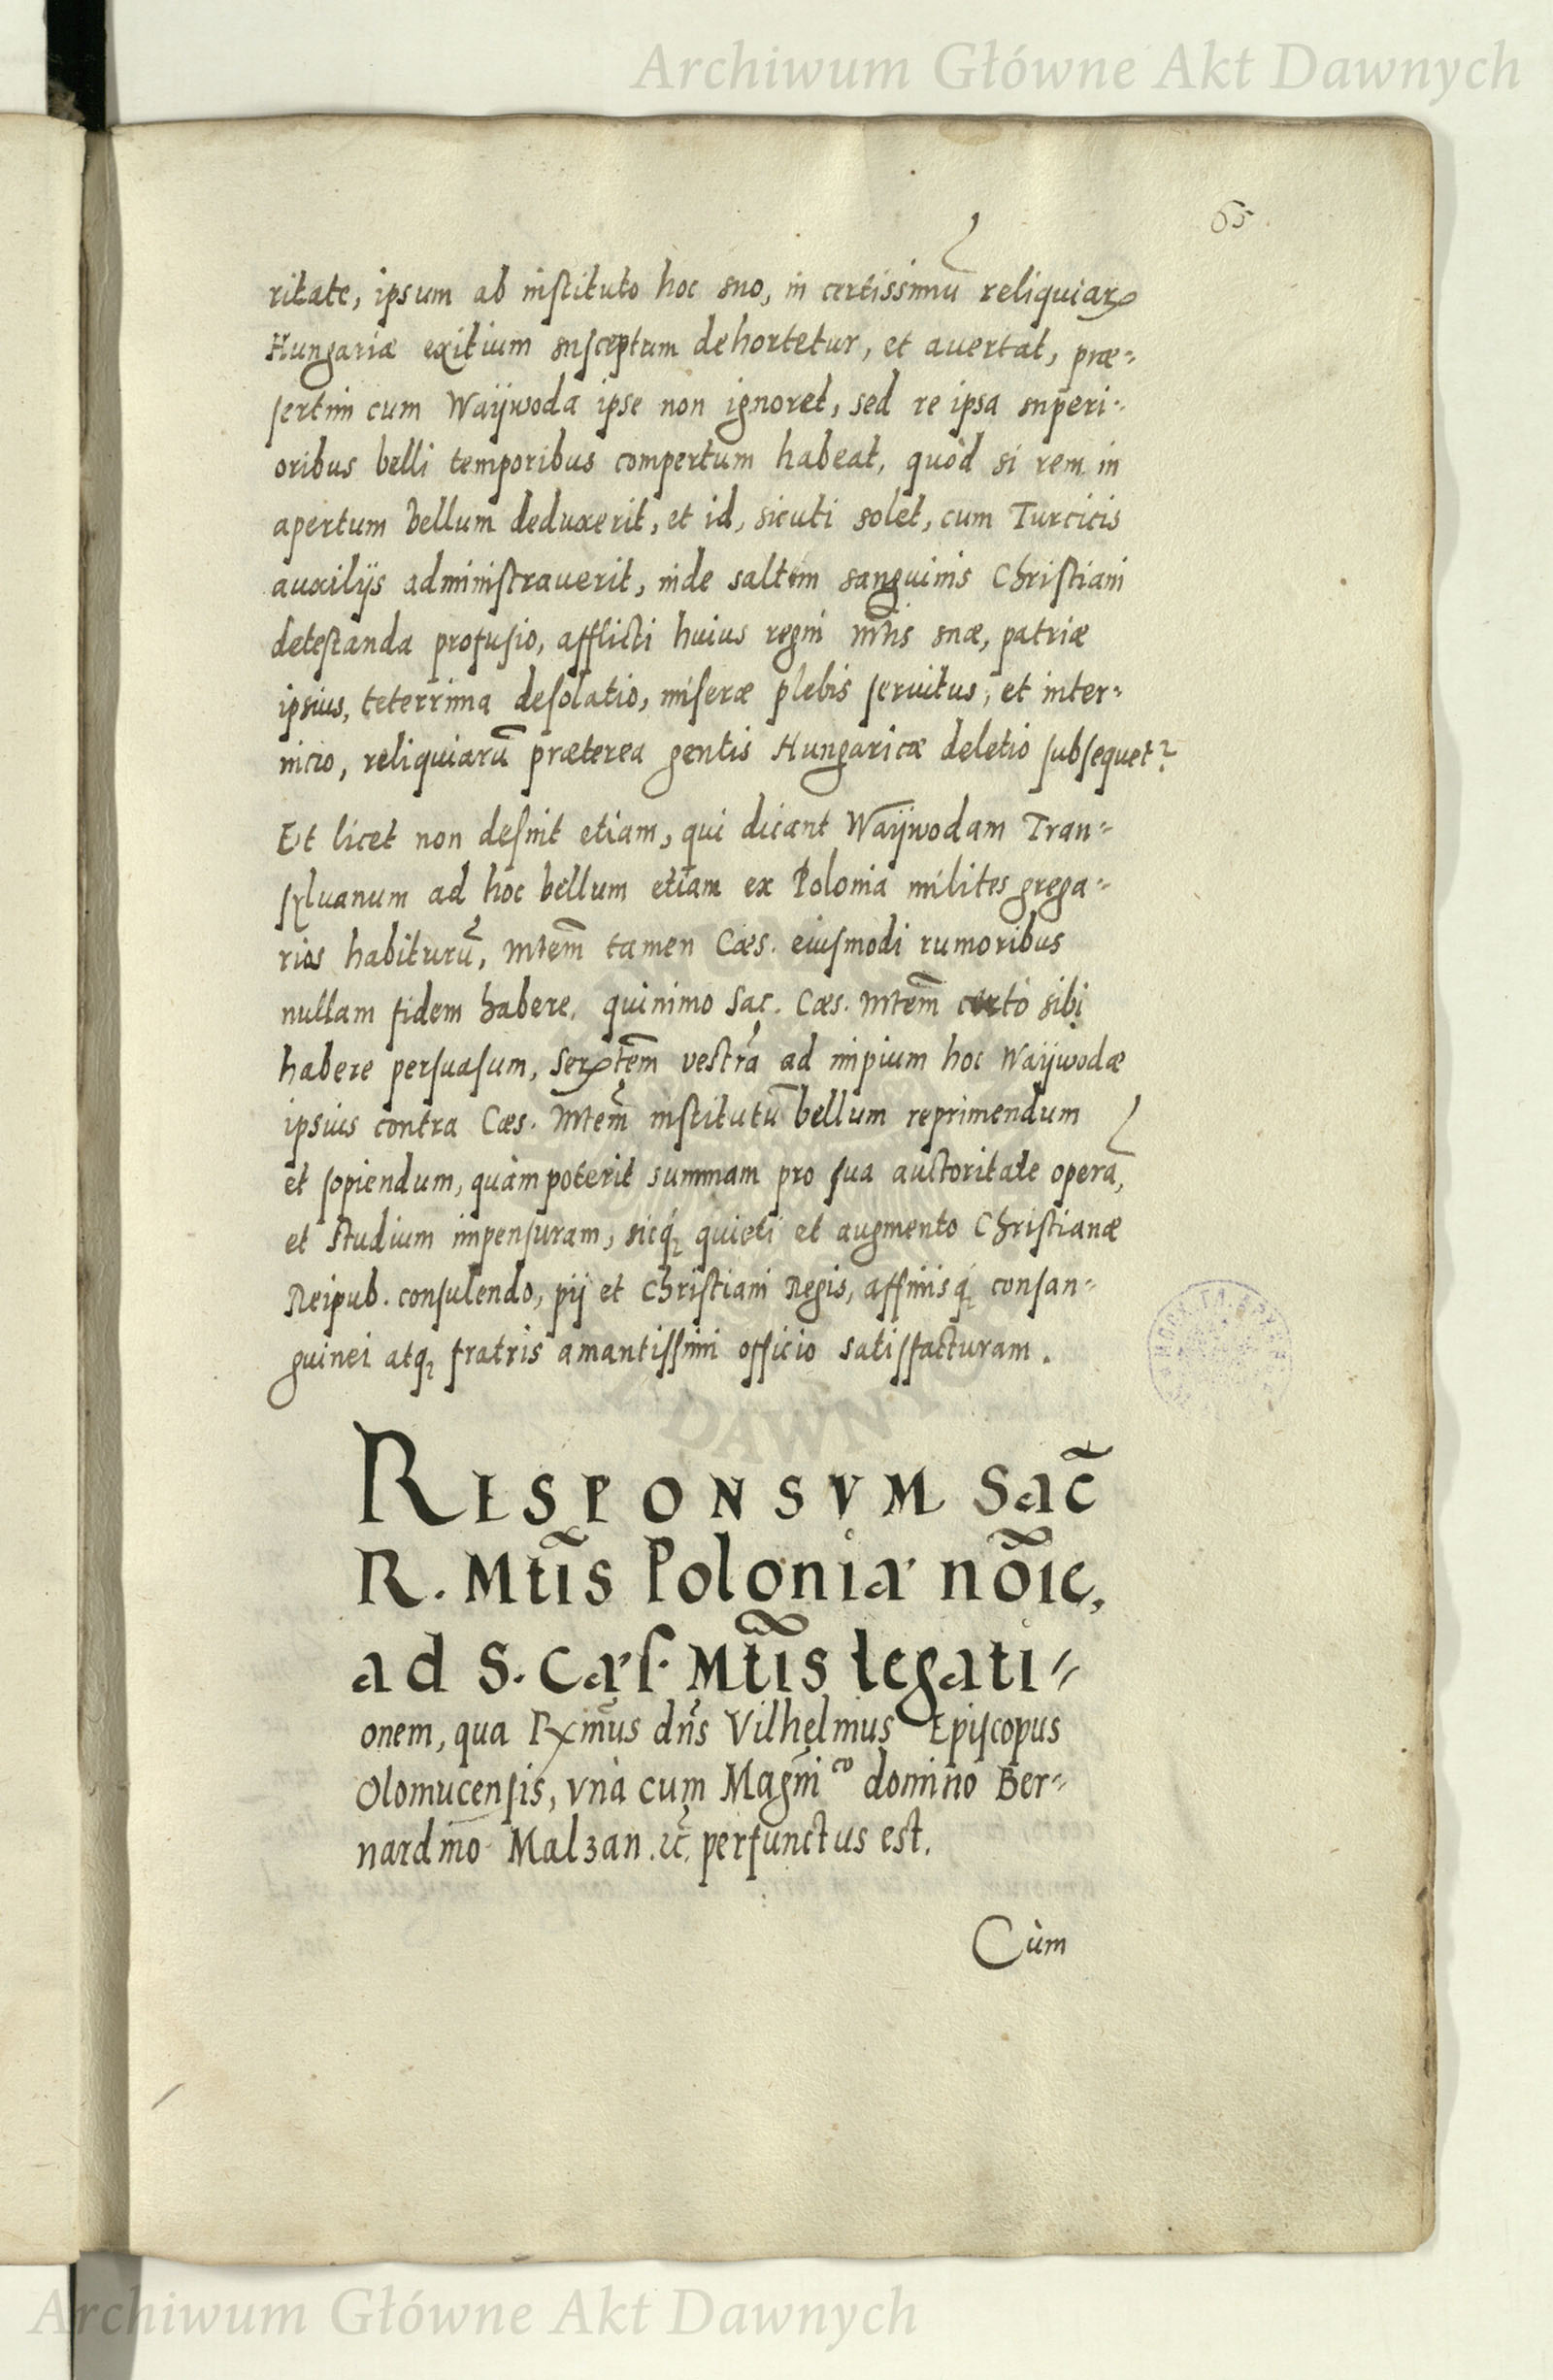 Archiwum Główne Akt Dawnych
65.
ritate, ipsum ab instituto hoc suo, in certissimũ reliquiarꝝ
Hungariæ exitium susceptum dehortetur, et auertat, præ-
sertim cum Waijwoda ipse non ignoret, sed re ipsa superi-
oribus belli temporibus compertum habeat, quòd si rem in
apertum bellum deduxerit, et id, sicuti solet, cum Turcicis
auxilijs administrauerit, inde saltem sanguinis Christiani
detestanda profusio, afflicti huius regni Mtis suæ, patriæ
ipsius, teterrima desolatio, miseræ plebis seruitus, et inter-
nicio, reliquiarũ præterea gentis Hungaricæ deletio subsequet?
Et licet non desint etiam, qui dicant Waijwodam Tran-
sẏluanum ad hoc bellum etiam ex Polonia milites grega-
rios habiturũ, Mtem̃ tamen Cæs. eiusmodi rumoribus
nullam fidem habere, quinimo Sac. Cæs. Mtem̃ certò sibi
habere persuasum, Serꝝtem̃ vestrã ad impium hoc Waijwodæ
ipsius contra Cæs. Mtem̃ institutũ bellum reprimendum
et sopiendum, quàm poterit summam pro sua auctoritate operã,
et studium impensuram, sicq́ꝫ quieti et augmento Christianæ
Reipub. consulendo, pij et Christiani Regis, affinisq́ꝫ consan-
guinei atqꝫ fratris amantissimi officio satisfacturam.
RESPONSVM Sac̃
R. Mtis̃ Poloniæ nõie,
ad S. Cæs. Mtis̃ legati-
onem, qua Rxm̃us dñs Vilhelmus Episcopus
Olomucensis, vnà cum Magñico domino Ber-
nardino Malzan. ꝛc̃. perfunctus est.
Cùm
DAWNYCH
Archiwum Główne Akt Dawnych